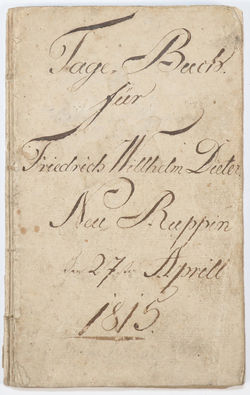 Tage-Buch.
für
Friedrich Willhelm Dieter
Neu Ruppin
den 27ten Aprill
1815.